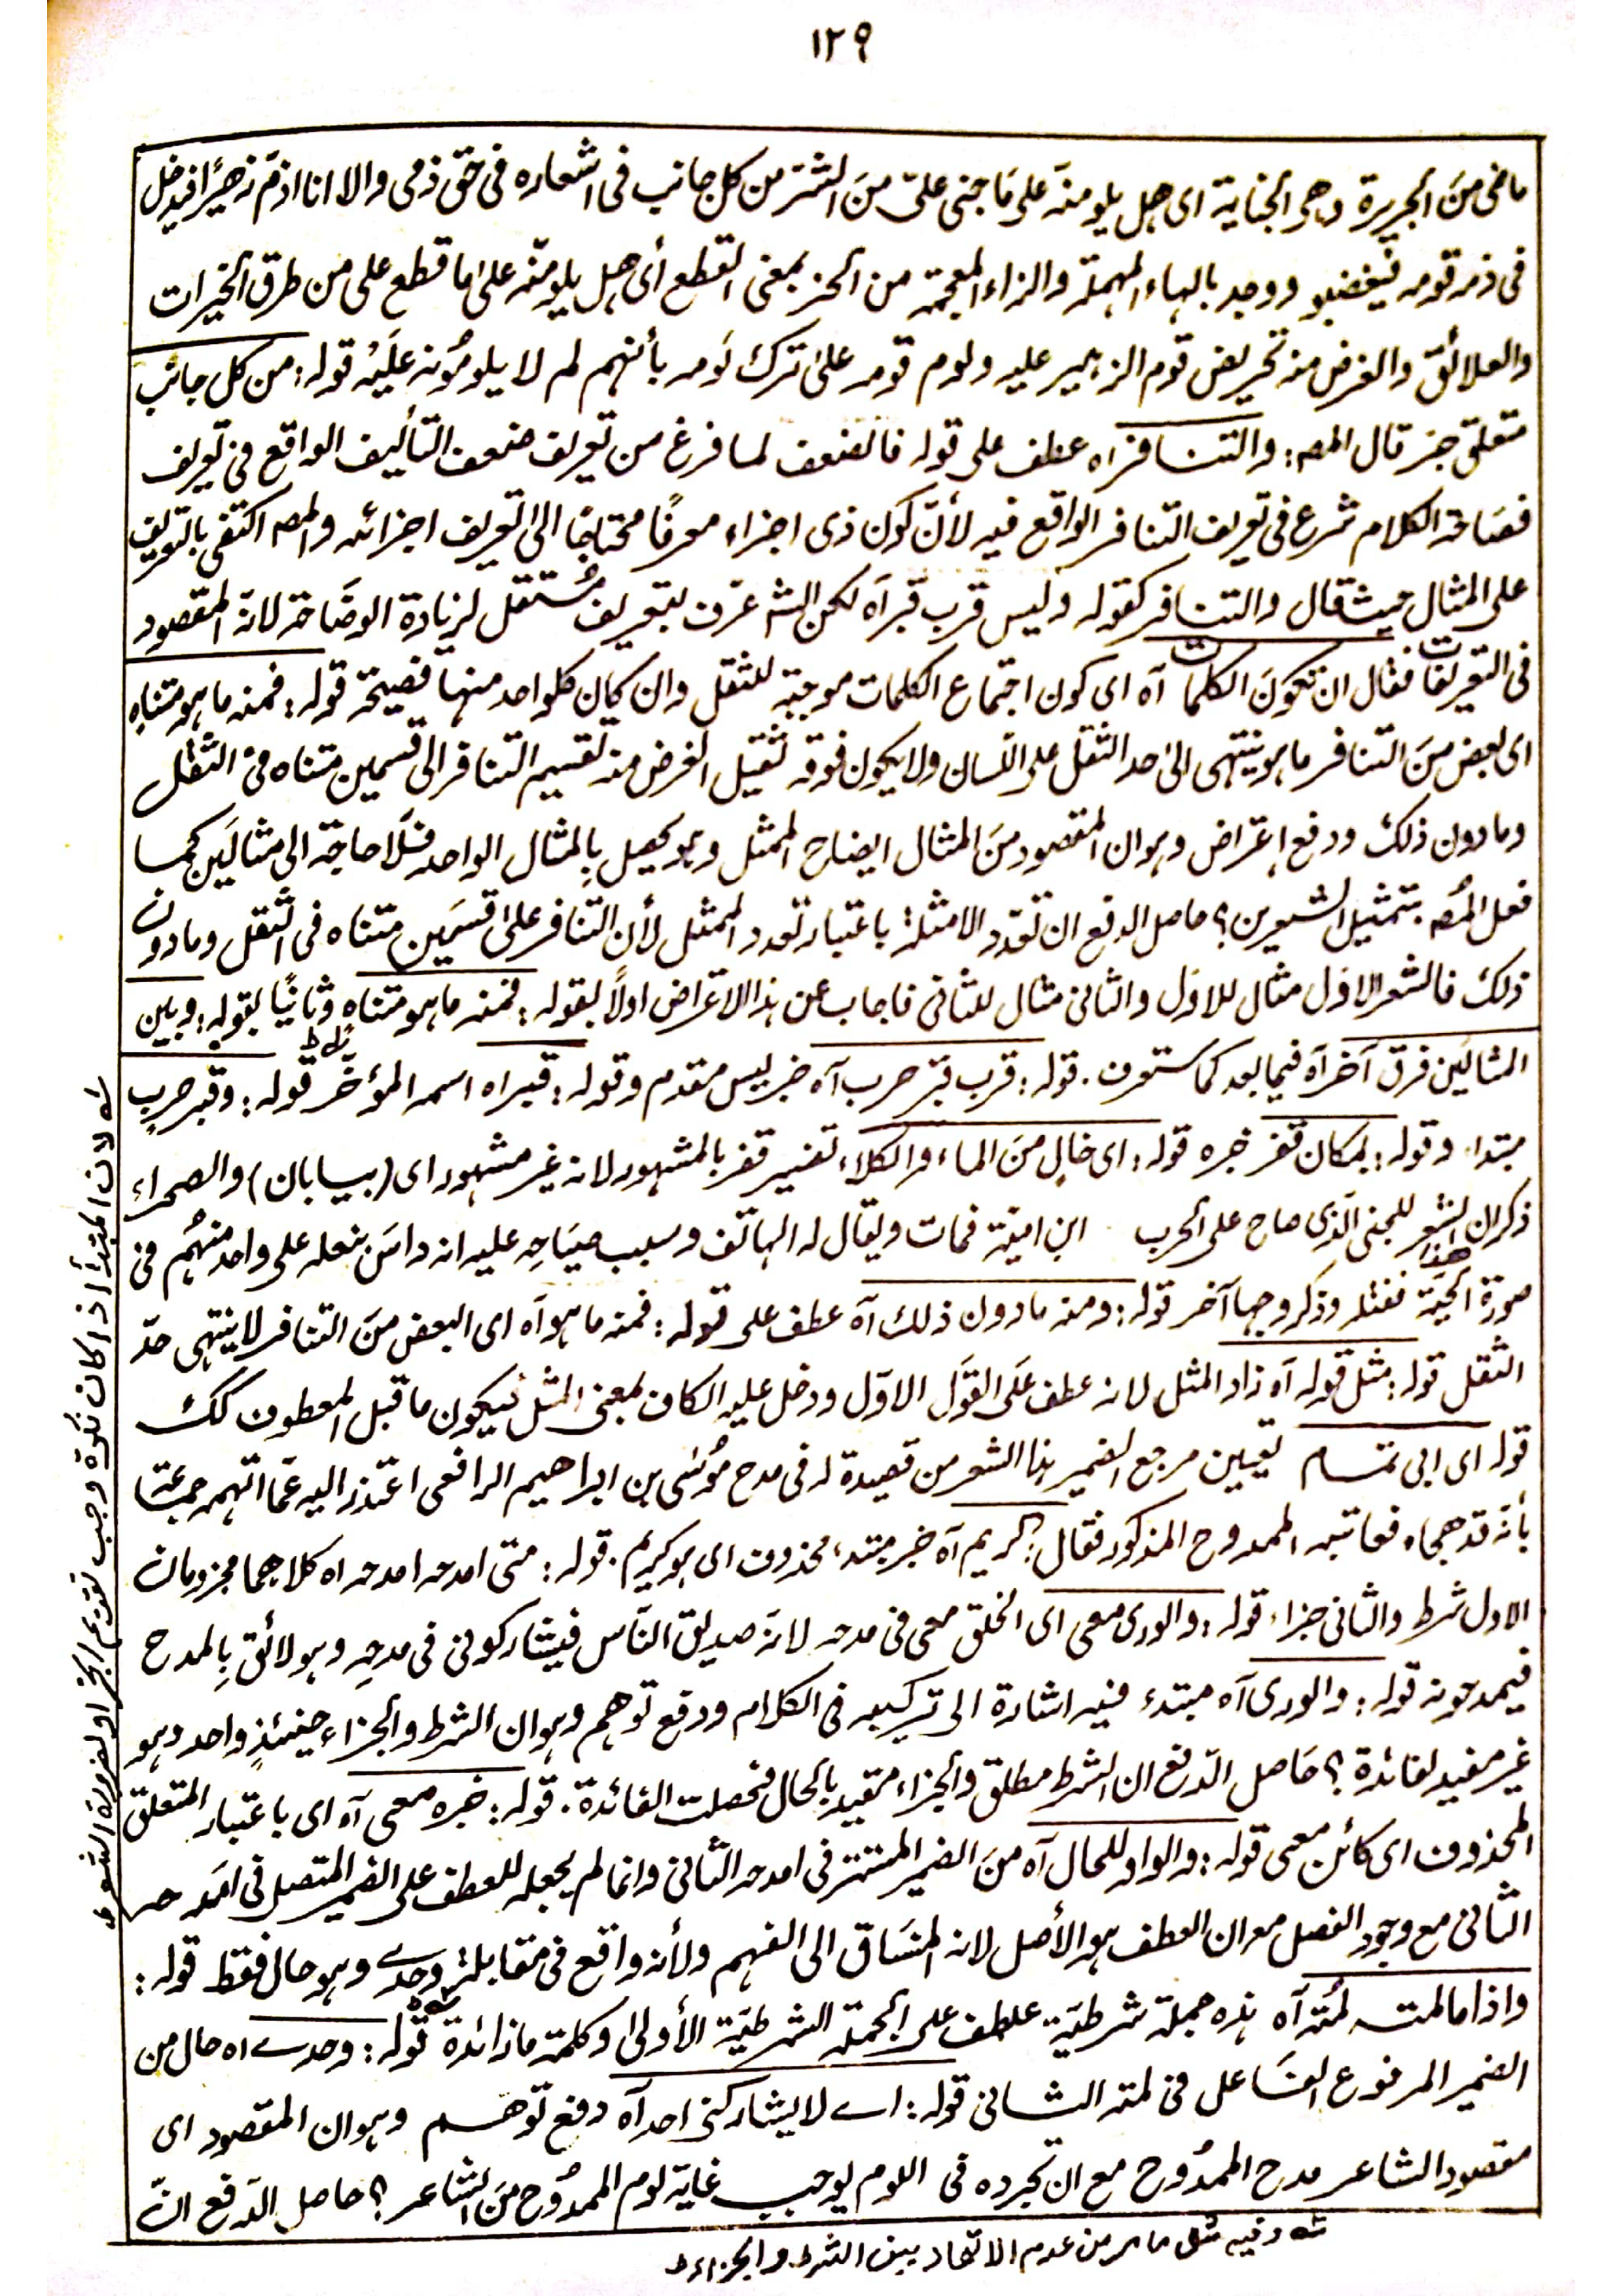 ١٢٩
ماضى منَ الجريرة وهى الجناية اى هل يلومنّه على مَا جنى علىّ منَ الشرّ من كل جانب فى اشعاره فى حَقّ ذمى والا انا اذمّ زهيرًا فيدخل
فى ذمه قومه فيغضبو ووجد بالهاء المهملة والزاء المعجمة من الحز بمعنى القطع أى هل يلومنّه على ما قطع على من طرق الخيرات
والعلائق والغرض منه تحريض قوم الزهير عليه ولوم قومه على ترك لَومه بأنهم لم لا يلومُونه علَيْه قوله: من كل جانب
متعلق جز قال المصه: والتنافراه عطف على قوله فالضعف لما فرغ من تعريف ضعف التأليف الواقع فى تعريف
فصَاحة الكلام شرع فى تعريف التنافر الواقع فيه لأنّ كون ذى اجزاء معرفًا محتاجًا الى تعريف اجزائه والمصه اكتفى بالتعريف
على المثال حيث قال والتنافر كقوله وليس قرب قبرآه لكن الشه عرّف بتعريف مُستقل لزيادة الوضَاحة لانه المقصود
فى التعريفات فقال ان تكونَ الكلمات آه اى كون اجتماع الكلمات موجبة للثقل وان كان كلواحد منها فصيحة قوله: فمنه ما هو متناهٍ
اى بعض منَ التنافر ما هو ينتهى الى حد الثقل على اللسان ولا يكون فوقه ثقيل الغرض منه تقسيم التنافر الى قسمين متناه فى الثقل
وما دون ذلك ودفع اعتراض وهو ان المقصود منَ المثال ايضاح الممثل وهو يحصل بالمثال الواحد فلَا حاجة الى مثالَين كما
فعل المُصه بتمثيل الشعرين؟ حاصل الدفع ان تعدّد الامثلة باعتبار تعدد الممثل لأن التنافر على قسمَين متناه فى الثقل وما دون
ذلك فالشعر الاوّل مثال للاوّل والثانى مثال للثانى فاجاب عن هذا الاعتراض اولاً بقوله: فمنه ما هو متناهٍ وثانيًا بقوله: وبين
المثالَين فرق آخر آه فيما بعد كما ستعرف. قوله: قرب قبر حرب آه خبر ليس مقدم وقوله: قبراه اسمه المؤخّر قوله: وقبر حربٍ
مبتداء وقوله: بمكان قفر خبره قوله: اى خالٍ منَ الماء والكلاء تفسير قفر بالمشهور لانه غير مشهور اى (بيابان) والصحراء
ذكر ان هذا الشعر للجنى الّذى صاح على الحرب ابن امية فمات ويقال له الهاتف وسبب صيَاحِه عليه انه داسَ بنعله على واحد منهُم فى
صورة الحيّة فقتله وذكر وجها آخر قوله: ومنه ما دون ذلك آه عطف على قوله: فمنه ما هو آه اى البعض منَ التنافر لا ينتهى حدّ
الثقل قوله: مثل قوله آه زاد المثل لانه عطف علَى القوَل الاوّل ودخل عليه الكاف بمعنى المثل فيكون ما قبل المعطوف كك
قوله اى ابى تمام تعيين مرجع الضمير هذا الشعر من قصيدة له فى مدح مُوسٰى بن ابراهيم الرافعى اعتذر اليه عمّا اتهمه جماعة
بأنه قد هجاه فعاتبه الممدوح المذكور فقال: كريم آه خبر مبتدء محذوف اى هو كريم. قوله: متى امدحه امدحه اه كلاهما مجزومان
الاول شرط والثانى جزاء قوله: والورى معى اى الخلق معى فى مدحه لانهَ صديق النَّاس فيشاركونى فى مدحِه وهو لائق بِالمدح
فيمدحونه قوله: والورى آه مبتدء فيه اشارة الى تركيبه فى الكلام ودفع توهم وهو ان الشرط والجزاء حينئذٍ واحد وهو
غير مفيد لفائدة؟ حَاصل الدّفع ان الشرط مطلق والجزاء مقيد بالحال فحصلت الفائدة. قوله: خبره معى آه اى باعتبار المتعلق
المحذوف اى كائن معى قوله: والواو للحال آه منَ الضمير المستتر فى امدحه الثانى وانما لم يجعله للعطف على الضمير المتصل فى امَدحه
الثانى مع وجود الفصل مع ان العطف هو الأصل لانه المنسَاق الى الفهم ولأنه واقع فى مقابلة وحدے وهو حال فقط قوله:
واذا مالمته لُمته آه هذه جملة شرطيّة عطف على الجملة الشرطيّة الأولى وكلمة ما زائدة قوله: وحدے اه حال من
الضمير المرفوع الفاعل فى لمته الثانى قوله: اے لا يشاركنى احد آه دفع توهم وهو ان المقصود اى
مقصود الشاعر مدح الممدُوح مع ان تجرده فى اللوم يوجب غاية لوم الممدُوح منَ الشاعر؟ حاصل الدّفع انّ
وفيه مثل ما مر من عدم الاتحاد بين الشرط والجزاء
لان المبتدأ اذا كان نكرة وجب تقديم الخبر او لضرورة الشعر